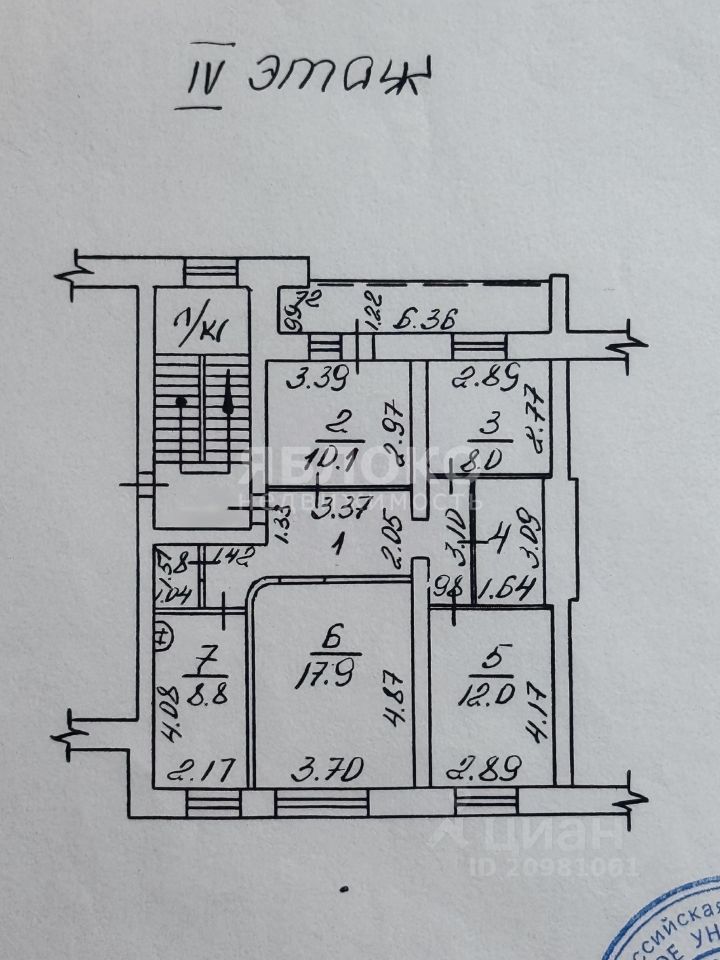 IV этаж
л/кл
99
72
1.22
6.36
3.39
2.89
2
10.1
2.97
3
8.0
2.77
ЯБЛОКО
недвижимость
1.33
3.37
1
2.05
3.10
4
3.09
1.57
8
1.42
1.04
98
1.64
7
8.8
4.08
2.17
6
17.9
4.87
3.70
5
12.0
4.17
2.89
Циан
ID 20981061